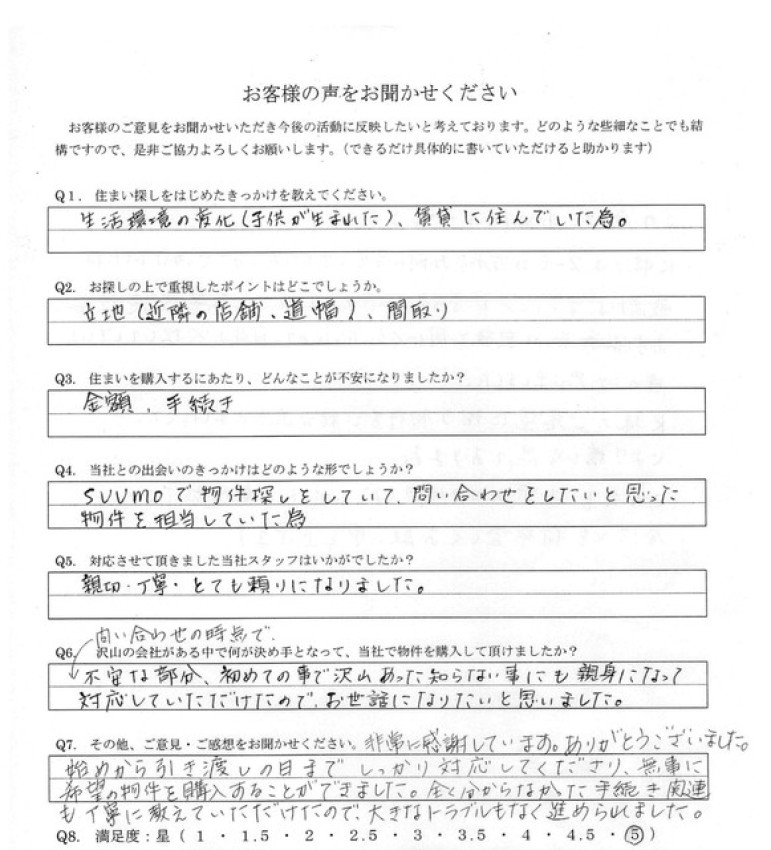 お客様の声をお聞かせください
お客様のご意見をお聞かせいただき今後の活動に反映したいと考えております。どのような些細なことでも結
構ですので、是非ご協力よろしくお願いします。(できるだけ具体的に書いていただけると助かります)
Q1. 住まい探しをはじめたきっかけを教えてください。
生活環境の変化(子供が生まれた)、賃貸に住んでいた為。
Q2. お探しの上で重視したポイントはどこでしょうか。
立地(近隣の店舗、道幅)、間取り
Q3. 住まいを購入するにあたり、どんなことが不安になりましたか?
金額、手続き
Q4. 当社との出会いのきっかけはどのような形でしょうか?
SUUMOで物件探しをしていて、問い合わせをしたいと思った
物件を担当していた為
Q5. 対応させて頂きました当社スタッフはいかがでしたか?
親切・丁寧・とても頼りになりました。
問い合わせの時点で、
Q6. 沢山の会社がある中で何が決め手となって、当社で物件を購入して頂けましたか?
不安な部分、初めての事で沢山あった知らない事にも親身になって
対応していただけたので、お世話になりたいと思いました。
Q7. その他、ご意見・ご感想をお聞かせください。非常に感謝しています。ありがとうございました。
始めから引き渡しの日までしっかり対応してくださり、無事に
希望の物件を購入することができました。全く分からなかった手続き関連
も丁寧に教えていただけたので、大きなトラブルもなく進められました。
Q8. 満足度:星(1・1.5・2・2.5・3・3.5・4・4.5・5)